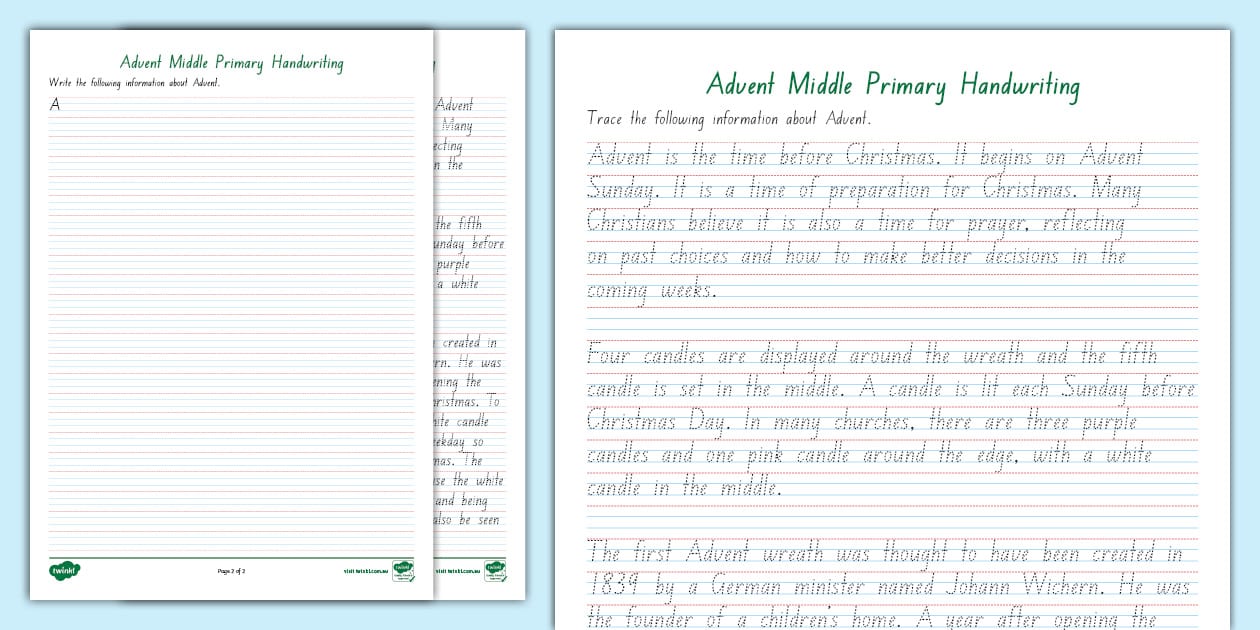 Advent Middle Primary Handwriting
Write the following information about Advent.
A
twinkl
Page 2 of 2
visit twinkl.com.au
Advent
Many
ecting
n the
the fifth
unday before
purple
a white
created in
rn. He was
ening the
hristmas. To
hite candle
ekday so
mas. The
se the white
and being
also be seen
visit twinkl.com.au
Advent Middle Primary Handwriting
Trace the following information about Advent.
Advent is the time before Christmas. It begins on Advent
Sunday. It is a time of preparation for Christmas. Many
Christians believe it is also a time for prayer, reflecting
on past choices and how to make better decisions in the
coming weeks.
Four candles are displayed around the wreath and the fifth
candle is set in the middle. A candle is lit each Sunday before
Christmas Day. In many churches, there are three purple
candles and one pink candle around the edge, with a white
candle in the middle.
The first Advent wreath was thought to have been created in
1839 by a German minister named Johann Wichern. He was
the founder of a children's home. A year after opening the